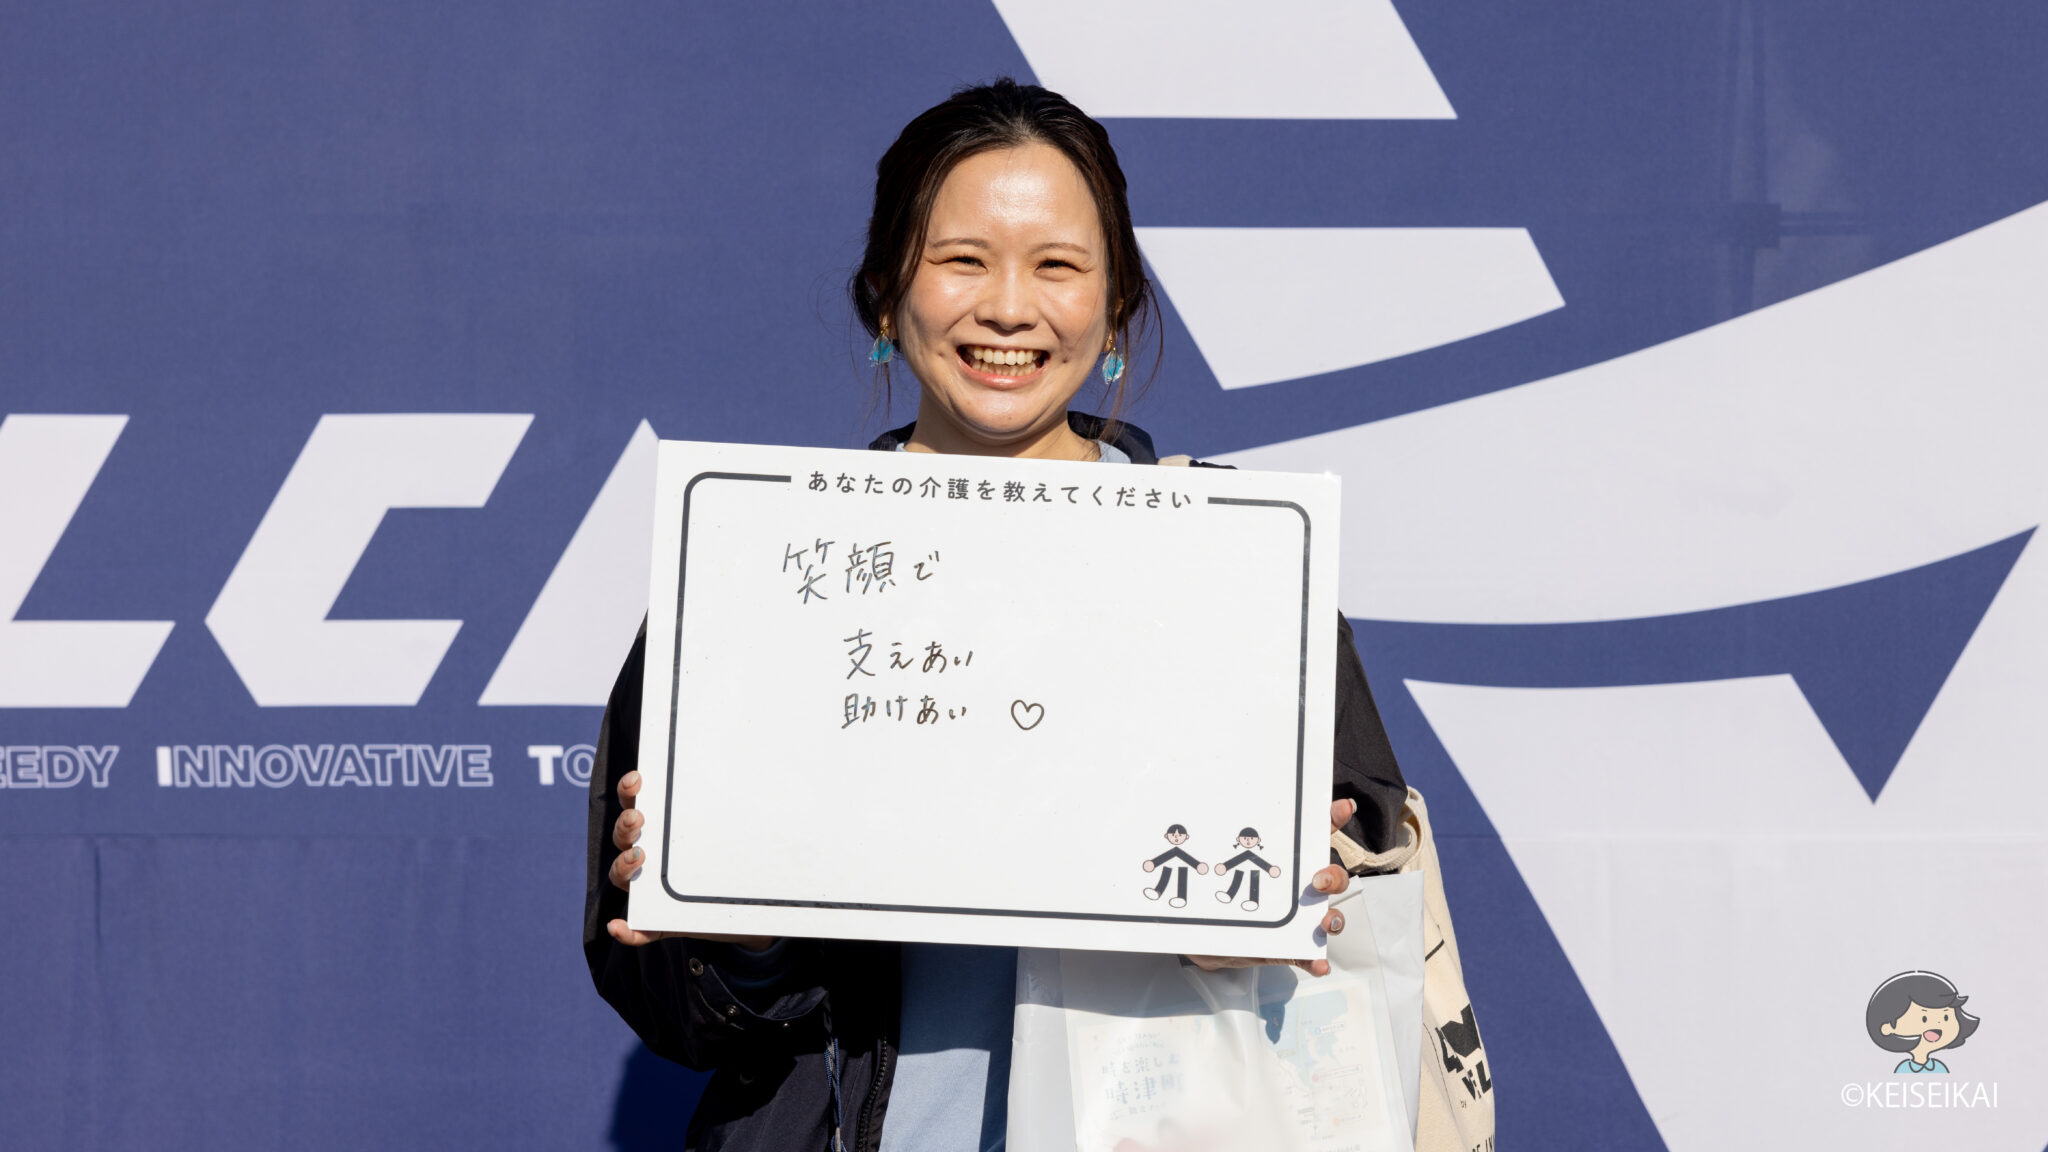 LC
EEDY INNOVATIVE TO
あなたの介護を教えてください
笑顔で
支えあい
助けあい ♡
©KEISEIKAI